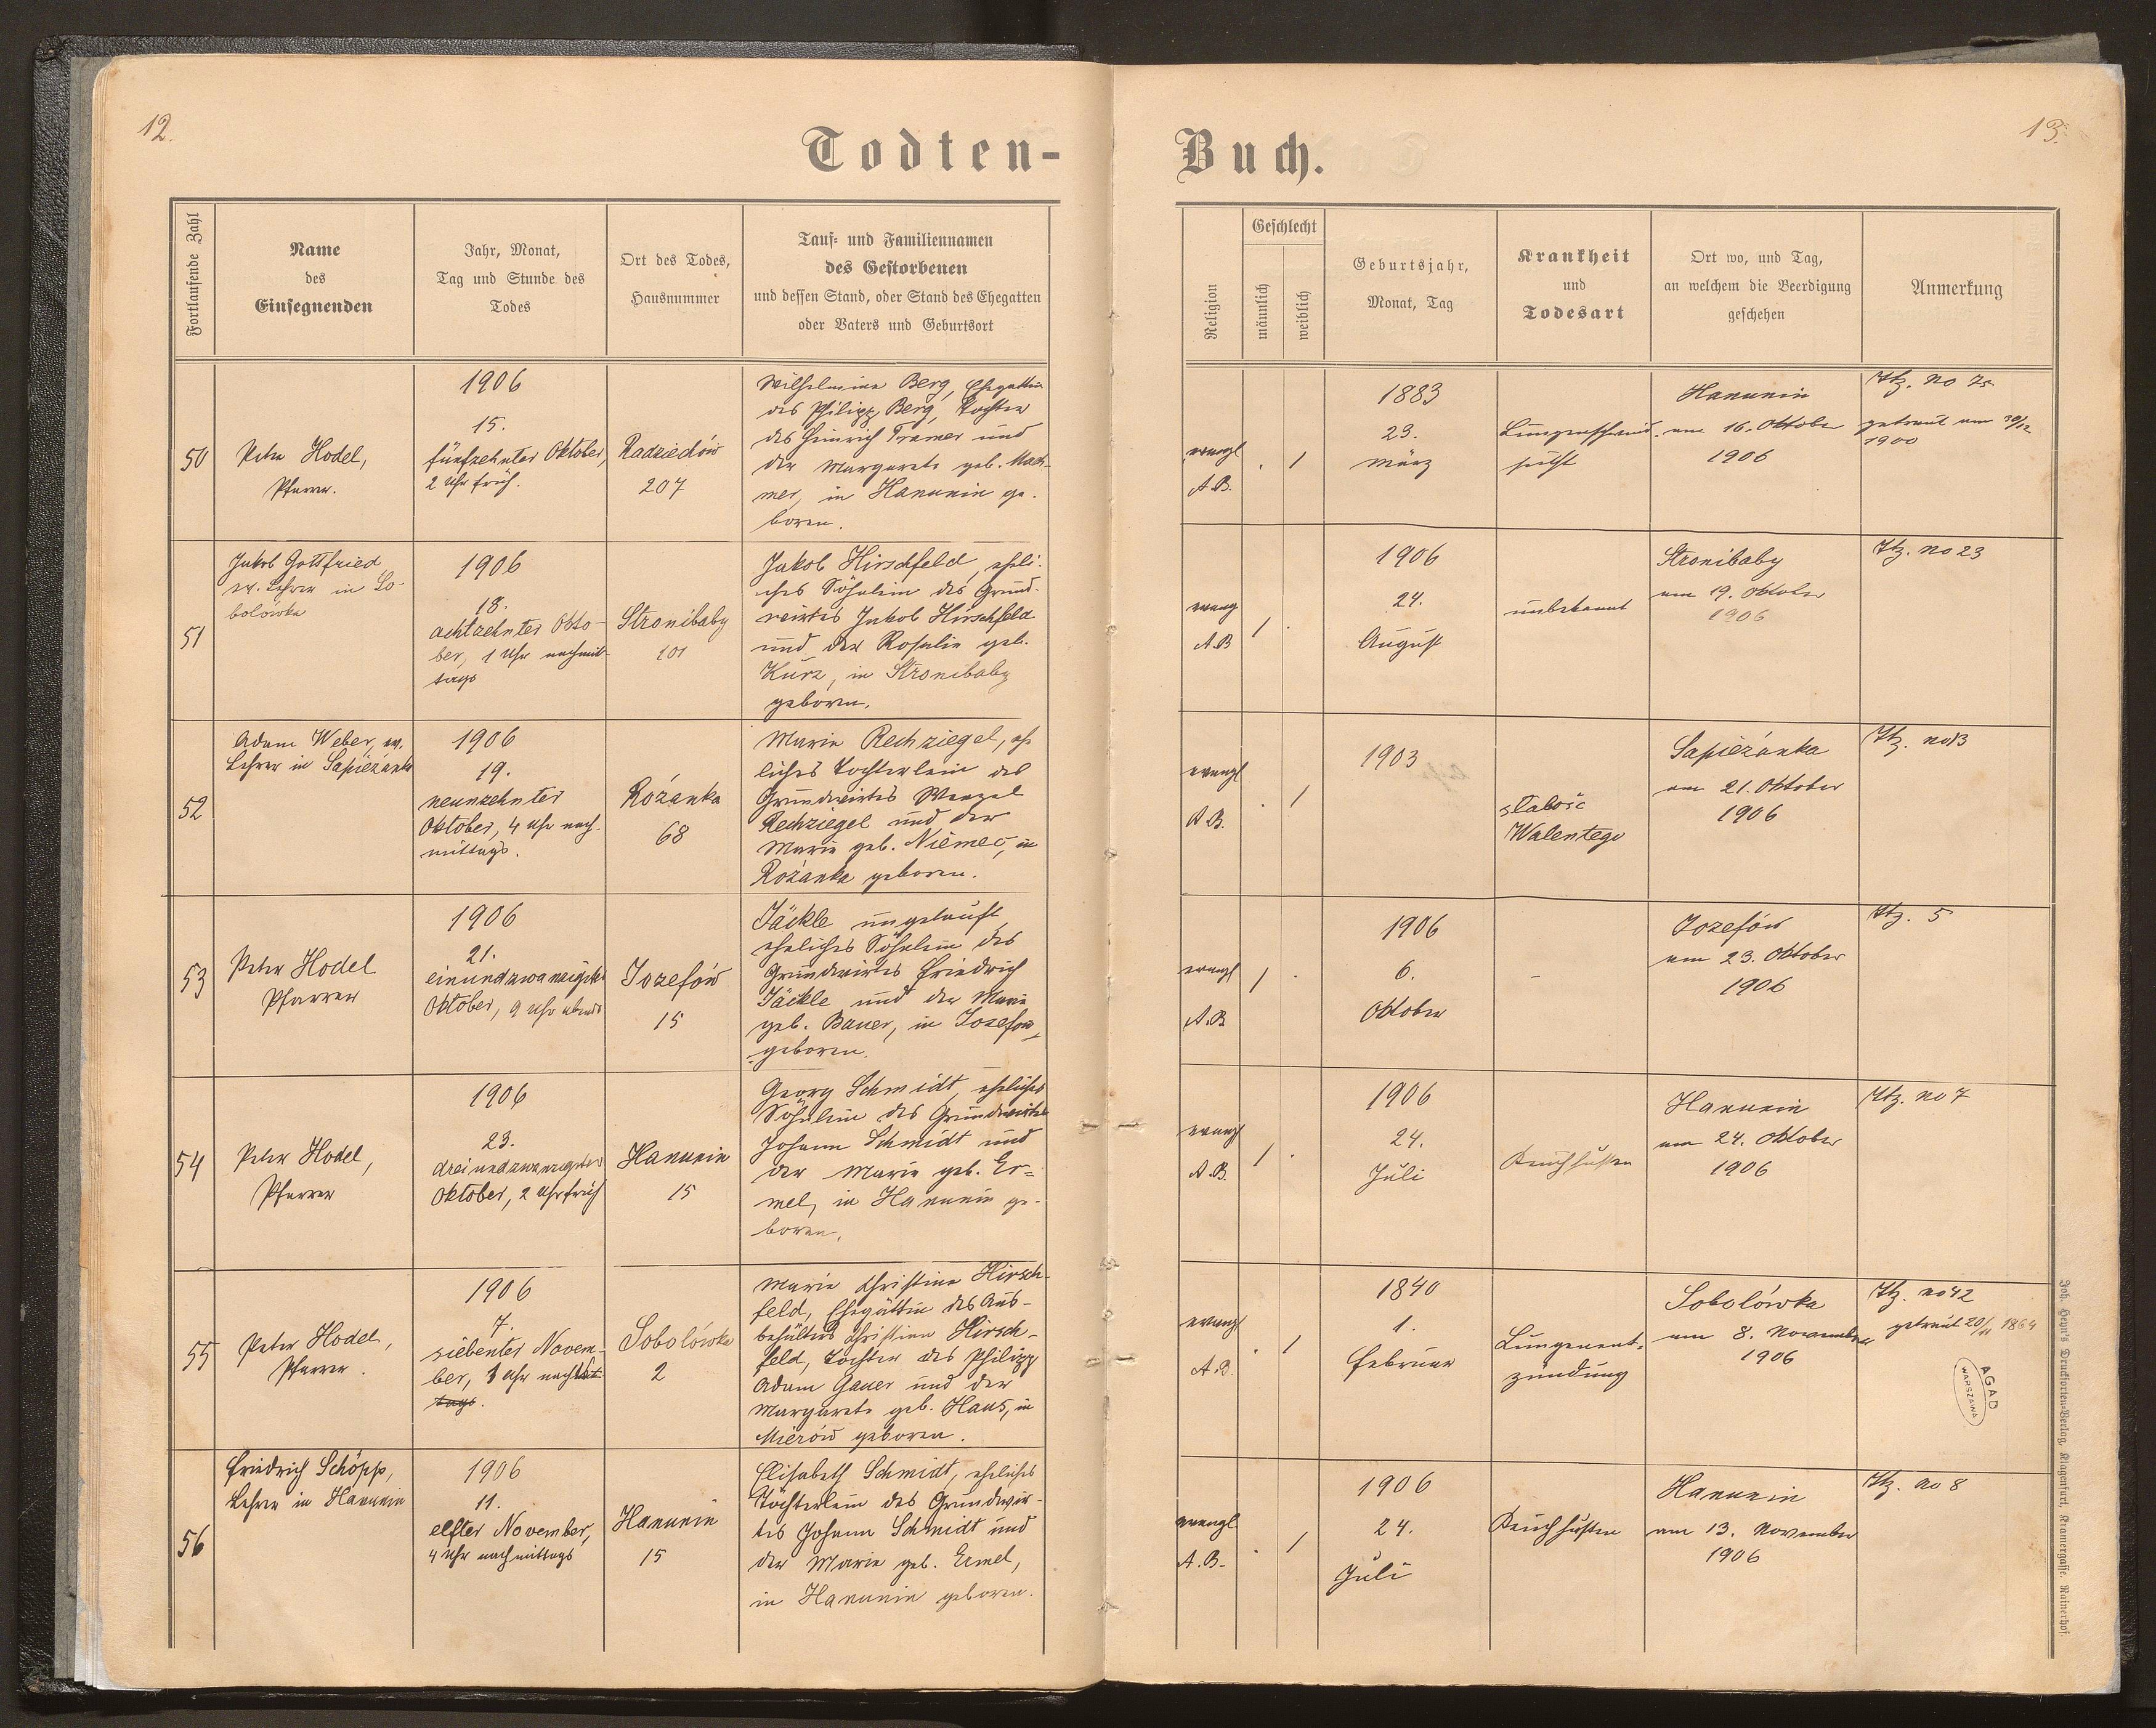 12.
Todten-
Fortlaufende Zahl
Name
des
Einsegnenden
Jahr, Monat,
Tag und Stunde des
Todes
Ort des Todes,
Hausnummer
Tauf- und Familiennamen
des Gestorbenen
und dessen Stand, oder Stand des Ehegatten
oder Vaters und Geburtsort
50
Peter Hodel,
Pfarrer.
1906
15.
fünfzehnter Oktober,
2 Uhr früh.
Radziechów
207
Wilhelmine Berg, Ehegattin
des Philipp Berg, Tochter
des Heinrich Tramer und
der Margarete geb. Mach-
mer, in Hanunin ge-
boren.
51
Jakob Gottfried
ev. Lehrer in So-
bolówka
1906
18.
achtzehnter Okto-
ber, 1 Uhr nachmit-
tags
Stronibaby
101
Jakob Hirschfeld, eheli-
ches Söhnlein des Grund-
wirtes Jakob Hirschfeld
und der Rosalie geb.
Kurz, in Stronibaby
geboren.
52
Adam Weber, ev.
Lehrer in Sapieżanka
1906
19.
neunzehnter
Oktober, 4 Uhr nach-
mittags.
Rózanka
68
Marie Rechziegel, ehe
liches Töchterlein des
Grundwirtes Wenzel
Rechziegel und der
Marie geb. Niemec, in
Rózanka geboren.
53
Peter Hodel
Pfarrer
1906
21.
einundzwanzigster
Oktober, 9 Uhr abends
Jozefów
15
Jäckle ungetauft,
eheliches Söhnlein des
Grundwirtes Friedrich
Jäckle und der Marie
geb. Bauer, in Josefow,
geboren.
54
Peter Hodel,
Pfarrer
1906
23.
dreiundzwanzigster
Oktober, 2 Uhr früh
Hanunin
15
Georg Schmidt, eheliches
Söhnlein des Grundwirtes
Johann Schmidt und
der Marie geb. Er=
mel, in Hanunin ge-
boren.
55
Peter Hodel,
Pfarrer.
1906
7.
siebenter Novem-
ber, 1 Uhr nachts
tags.
Sobolówka
2
Marie Christine Hirsch-
feld, Ehegattin des Aus-
behälters Christian Hirsch-
feld, Tochter des Philipp
Adam Gauer und der
Margarete geb. Haus, in
Mierów geboren.
56
Friedrich Schöpp,
Lehrer in Hanunin
1906
11.
elfter November,
4 Uhr nachmittags
Hanunin
15
Elisabeth Schmidt, eheliches
Töchterlein des Grundwir-
tes Johann Schmidt und
der Marie geb. Ermel,
in Hanunin geboren.
13.
Buch.
Religion
Geschlecht
männlich
weiblich
Geburtsjahr,
Monat, Tag
Krankheit
und
Todesart
Ort wo, und Tag,
an welchem die Beerdigung
geschehen
Anmerkung
evangl
A.B.
. /
1883
23.
März
Lungenschwind-
sucht
Hanunin
am 16. Oktober
1906
Itz. no 75
getraut am 30/12
1900
evang
A.B
/ .
1906
24.
August
unbekannt
Stronibaby
am 19. Oktober
1906
Itz. no 23
evangl
A.B.
. /
1903
słabość
Walentego
Sapieżanka
am 21. Oktober
1906
Itz. no 13
evangl
A.B
/ .
1906
6.
Oktober
-
Jozefów
am 23. Oktober
1906
Itz. 5
evangl
A.B.
/ .
1906
24.
Juli
Keuchhusten
Hanunin
am 24. Oktober
1906
Itz. no 7
evangl
A.B.
. /
1840
1.
Februar
Lungenent-
zündung
Sobolówka
am 8. November
1906
Itz. no 42
getraut 20/11 1864
AGAD
WARSZAWA
evangl
A.B.
. /
1906
24.
Juli
Keuchhusten
Hanunin
am 13. November
1906
Itz. no 8
Joh. Heyn's Drucksorten-Verlag, Klagenfurt, Kramergasse. Rainerhof.